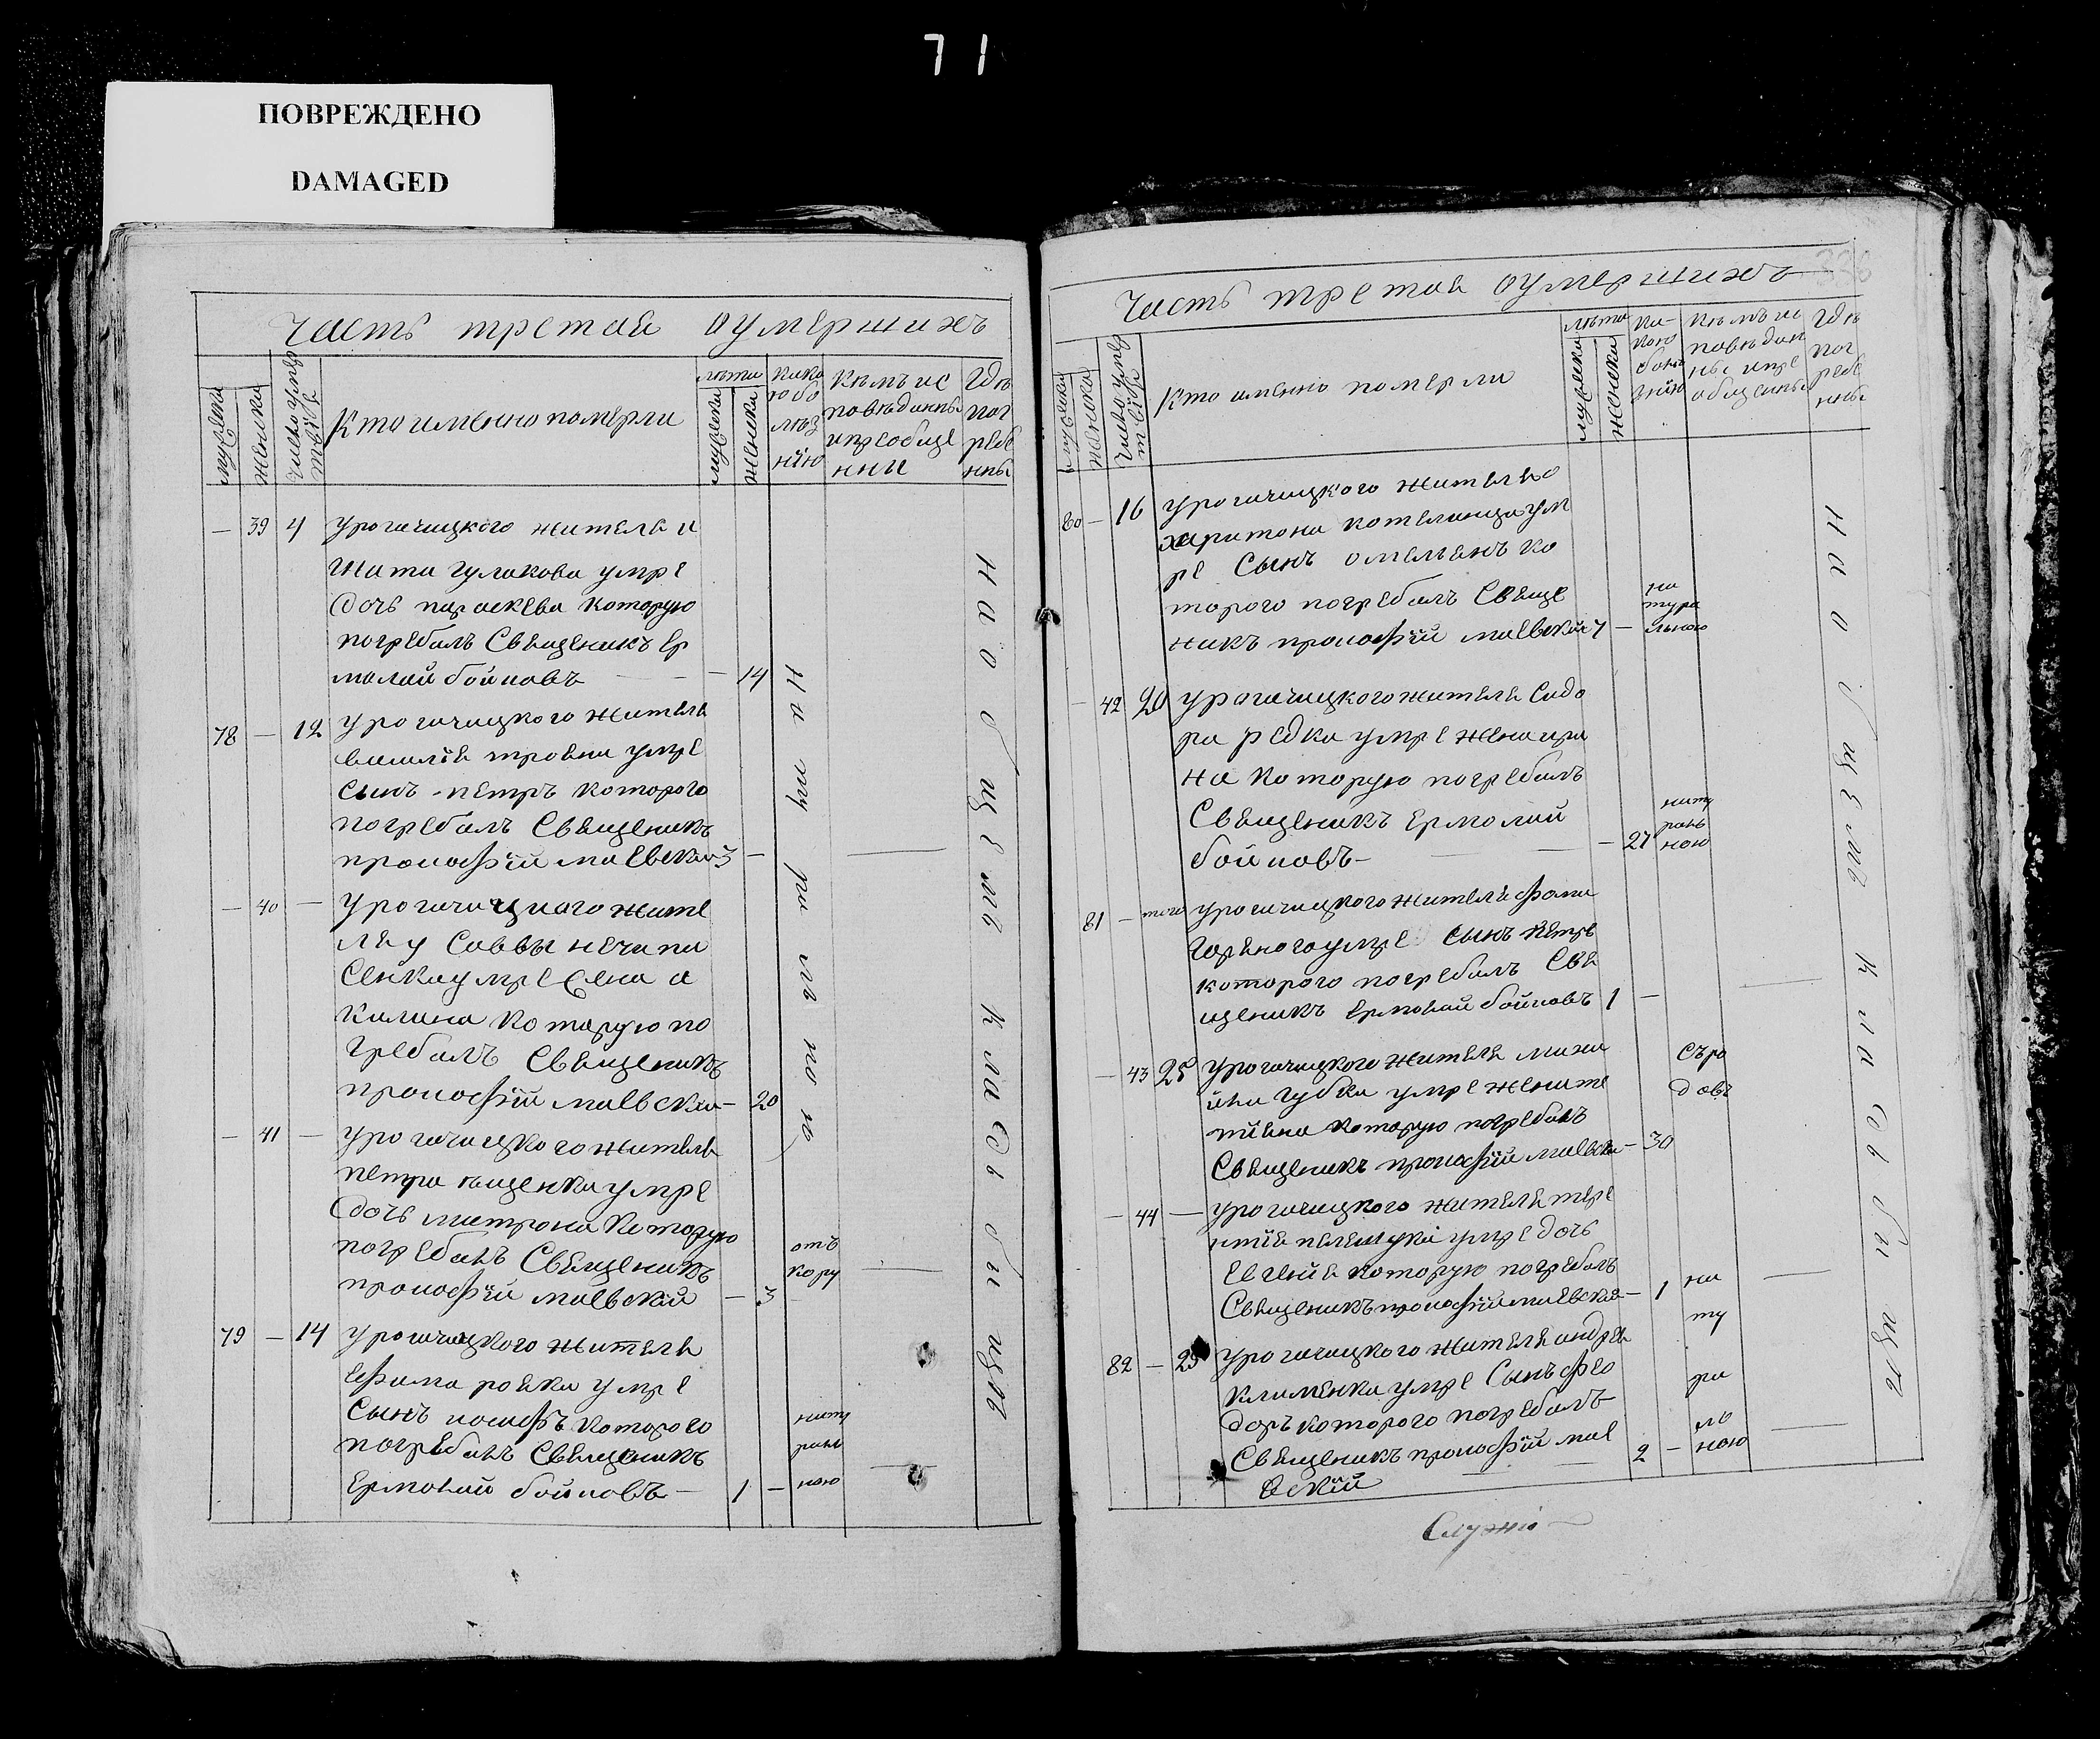 71
ПОВРЕЖДЕНО
DAMAGED
Часть третая оумершихъ
мужеска
женска
число умер
Кто именно померли
лѣта
мужеска
женска
како
ю бо
лѣз
нїю
кѣмъ ис
повѣданны
и преобще
нни
Гдѣ
пог
ребе
нны
— 39 4 Урогачицкого жителя и
гната гулакова умре
дочь параскева которую
погребалъ Священикъ ер
молай бойковъ — 14
78 — 12 Урогачицкого жителя
василїя трояна умре
сынъ петръ которого
погребалъ Священикъ
прокофїй маевскїй 3 —
— 40 — Урогачицкаго жите
ля у Саввы нечипа
Сенка умре жена а
килина которую по
гребалъ Священикъ
прокофїй маевскїй — 20
— 41 — Урогачицкого жителя
петра
дочь матрона которую
погребалъ Священикъ
прокофїй маевскїй — 3
отъ
кору
79 — 14 Урогачицкого жителя
ефима рояка умре
Сынъ иосифъ которого
погребалъ Священикъ
Ермолай бойковъ — 1 —
нату
раль
ною
на ту ра ль но ю
на общемъ кладбищѣ
336
Часть третая оумершихъ
мужеска
женска
число умер
Кто именно померли
лѣта
мужеска
женска
ка-
кою
болѣ
знїю
кѣмъ ис
повѣдан
ны и пре
общены
Гдѣ
пог
ребе
нны
80 — 16 Урогачицкого жителя
харитона котелевца ум
ре Сынъ омельянъ ко
торого погребалъ Свяще
никъ прокофїй маевскїй 7 —
на
тура
льною
— 42 20 Урогачицкого жителя Сидо
ра редки умре жена ири
на которую погребалъ
Священикъ Ермолай
бойковъ — — 27
нату
раль
ною
81 — того Урогачицкого жителя фоми
умре сынъ петръ
которого погребалъ Свя
щеникъ ермолай бойковъ 1 —
— 43 25 Урогачицкого жителя миха
йла губки умре жена те
тїяна которую погребалъ
Священикъ прокофїй маевскїй — 30
съ ро
довъ
— 44 — Урогачицкого жителя тере
нтїя умре дочь
Евгенїя которую погребалъ
Священикъ прокофїй маевскїй — 1
82 — 29 Урогачицкого жителя андрея
клименка умре Сынъ фео
доръ которого погребалъ
Священикъ прокофїй мае
вскїй 2 —
на
ту
ра
ль
ною
на общемъ кладбищѣ